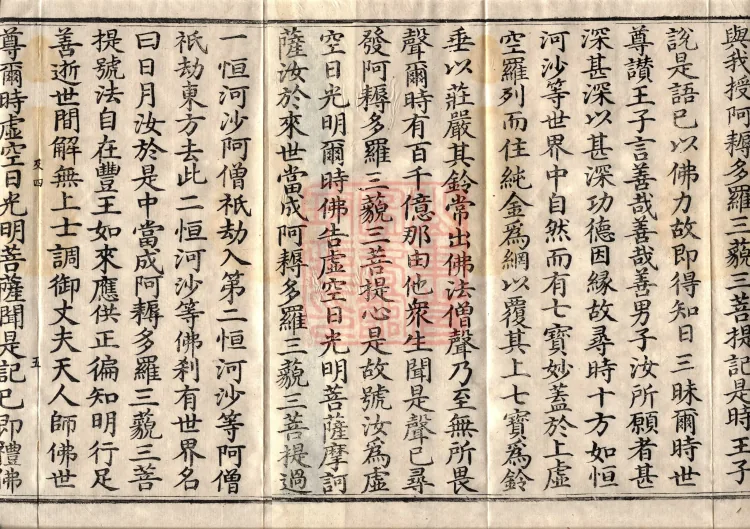 與我授阿耨多羅三藐三菩提記是時王子
說是語已以佛力故即得知日三昧爾時世
尊讃王子言善哉善哉善男子汝所願者甚
深甚深以甚深功德因緣故尋時十方如恒
河沙等世界中自然而有七寶妙蓋於上虛
空羅列而住純金爲網以覆其上七寶爲鈴
垂以莊嚴其鈴常出佛法僧聲乃至無所畏
聲爾時有百千億那由他衆生聞是聲已尋
發阿耨多羅三藐三菩提心是故號汝爲虛
空日光明爾時佛告虛空日光明菩薩摩訶
薩汝於來世當成阿耨多羅三藐三菩提過
一恒河沙阿僧祇劫入第二恒河沙等阿僧
祇劫東方去此二恒河沙等佛刹有世界名
曰日月汝於是中當成阿耨多羅三藐三菩
提號法自在豐王如來應供正徧知明行足
善逝世間解無上士調御丈夫天人師佛世
四 五
尊爾時虛空日光明菩薩聞是記已即禮佛